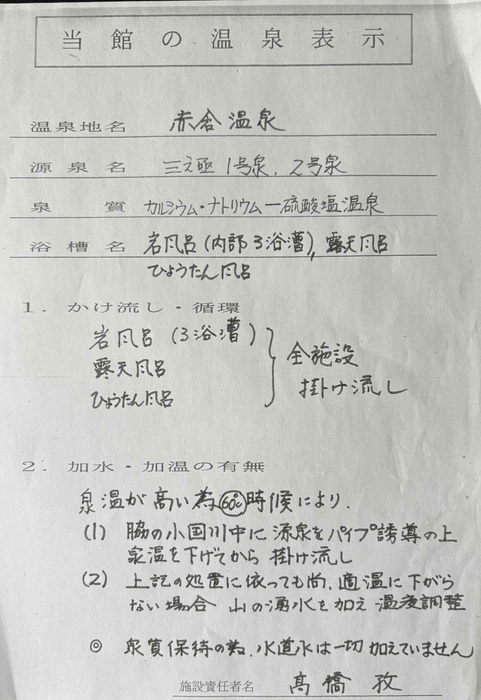 当館の温泉表示
温泉地名 赤倉温泉
源泉名 三之亟1号泉、2号泉
泉質 カルシウム・ナトリウム-硫酸塩温泉
浴槽名 岩風呂(内部3浴漕)、露天風呂
ひょうたん風呂
1. かけ流し・循環
岩風呂(3浴漕)
露天風呂
ひょうたん風呂
全施設
掛け流し
2. 加水・加温の有無
泉温が高い為60℃時候により、
(1) 脇の小国川中に源泉をパイプ誘導の上
泉温を下げてから掛け流し
(2) 上記の処置に依っても尚、適温に下がら
ない場合 山の湧水を加え温度調整
◎ 泉質保持の為、水道水は一切加えていません
施設責任者名 髙橋 孜